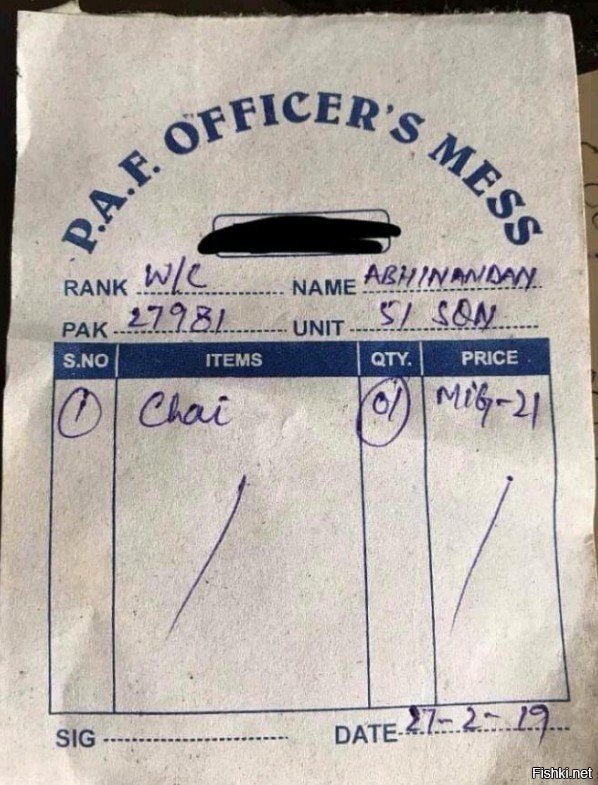 P.A.F. OFFICER'S MESS
RANK W/C NAME ABHINANDAN
PAK 27981 UNIT 51 SQN
S.NO ITEMS QTY. PRICE
1 Chai 01 MiG-21
SIG DATE 27-2-19
Fishki.net